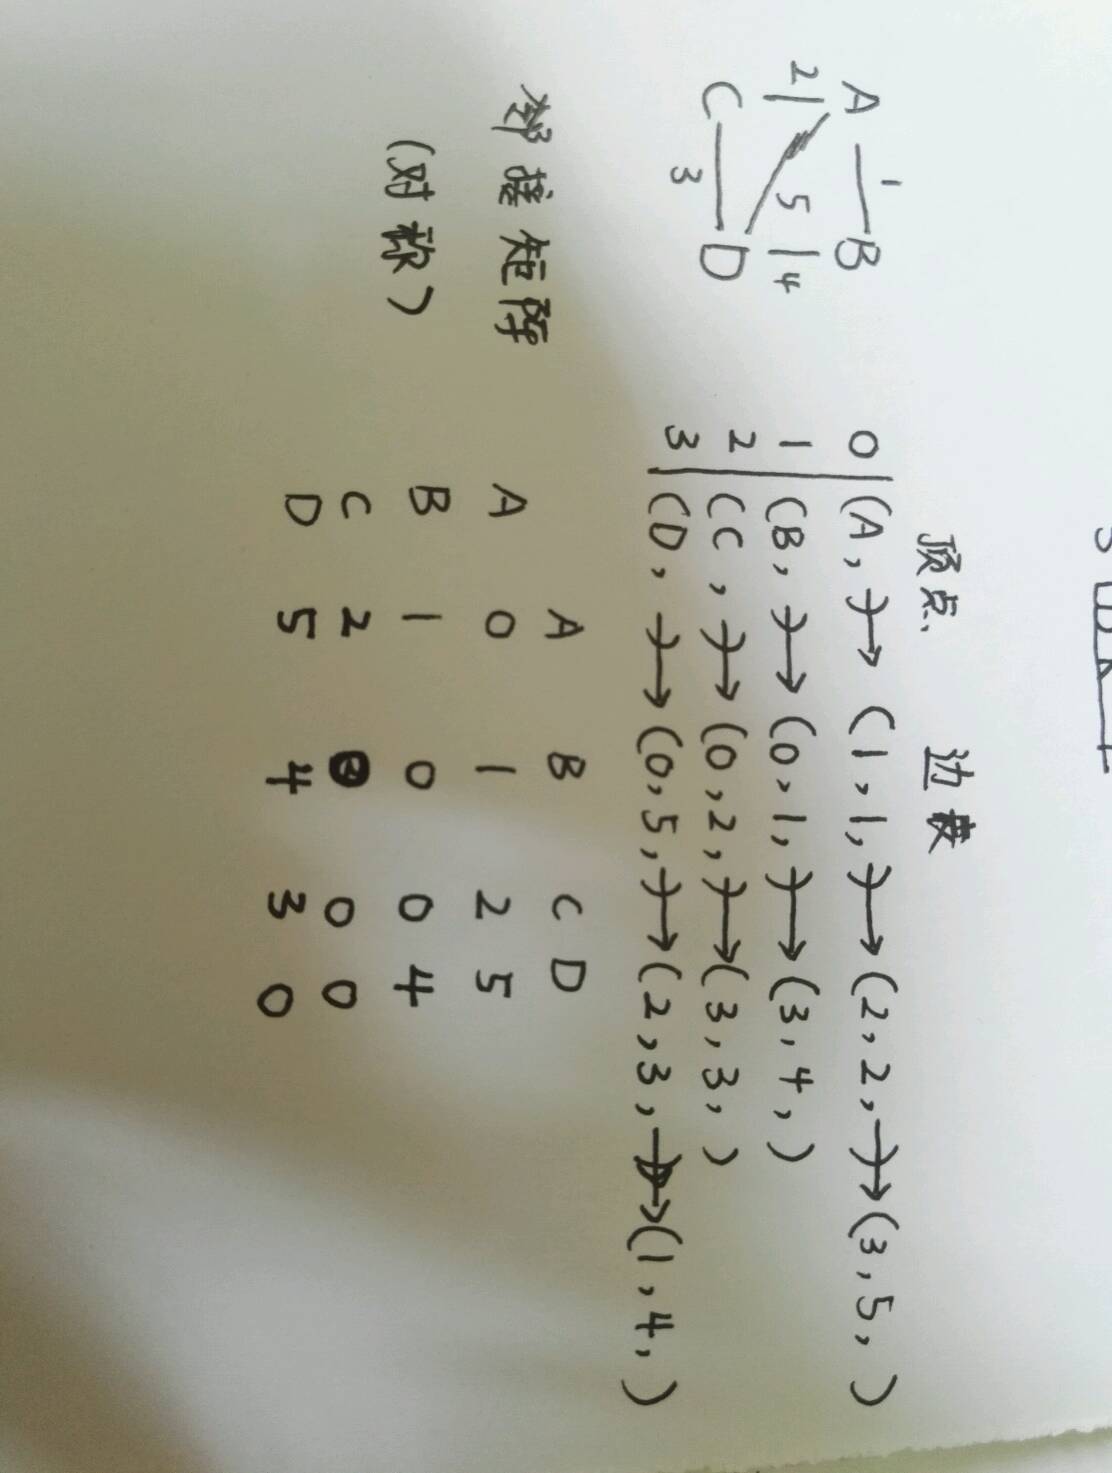 顶点 边表
A 1 B
2 5 4
C 3 D
0 (A, )→ (1,1, )→ (2,2, )→ (3,5, )
1 (B, )→ (0,1, )→ (3,4, )
2 (C, )→ (0,2, )→ (3,3, )
3 (D, )→ (0,5, )→ (2,3, )→ (1,4, )
邻接矩阵
(对称)
A B C D
A 0 1 2 5
B 1 0 0 4
C 2 0 0
D 5 4 3 0